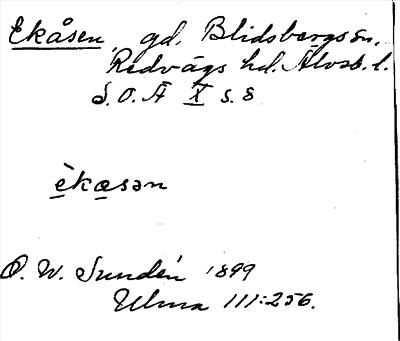 Ekåsen, gd. Blidsbergs sn.
Redvägs hd. Älvsb. l.
S. O. Ä X s. 8
èkɷsən
O. W. Sundén 1899
Ulma 111:256.